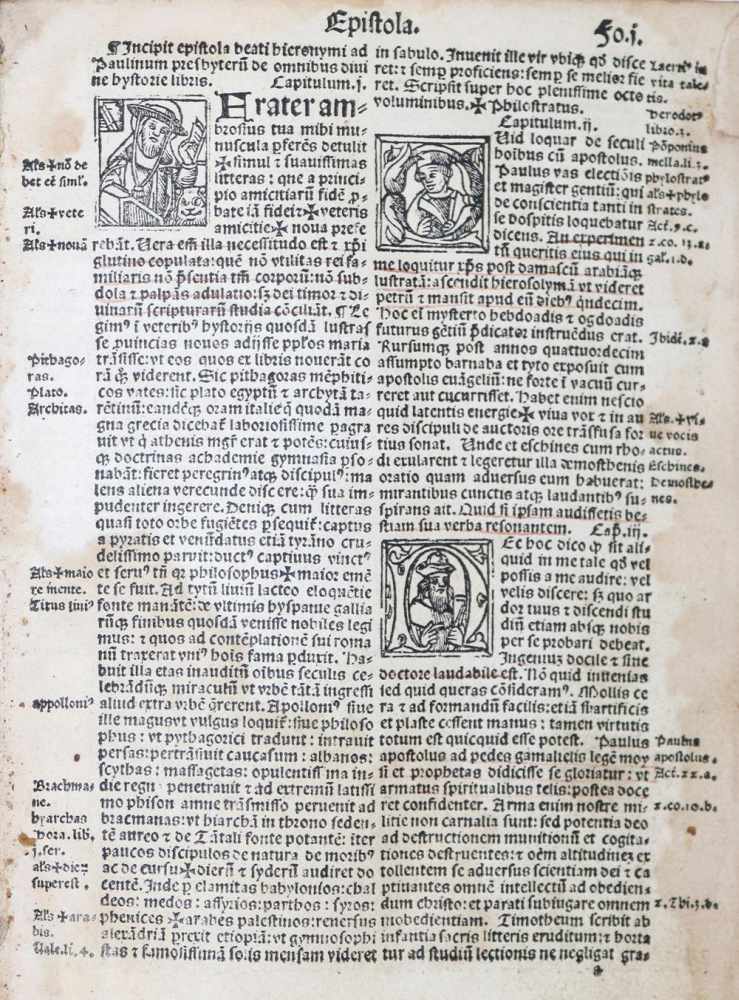 Epistola.
Fo.j.
¶ Incipit epistola beati hieronymi ad
Paulinum presbyterū de omnibus diui
ne hystorie libris. Capitulum.j.
Frater am=
brosius tua mihi mu=
nuscula ꝑferēs detulit
✠simul & suauissimas
litteras : que a princi=
pio amicitiarū fidē ꝓ=
bate iā fidei:✠veteris
amicitie✠noua prefe
rebāt. Uera em̄ illa necessitudo est & xp̄i
glutino copulata: quē nō vtilitas rei fa=
miliaris nō p̄sentia tm̄ corporū: nō sub=
dola & palpās adulatio: sꝫ dei timor & di=
uinarū scripturarū studia cōciliāt. ¶ Le
gimꝰ ī veteribꝰ hystorijs quosdā lustras
se ꝓuincias nouos adijsse ppl̄os maria
trāsisse: vt eos quos ex libris nouerāt co
rā qꝫ viderent. Sic pithagoras mēphiti=
cos vates: sic plato egyptū & archytā ta=
rētinū: eandēqꝫ oram italie q̄ quodā ma=
gna grecia dicebat laboriosissime ꝑagra
uit vt q̄ athenis mgr̄ erat & potēs: cuius=
qꝫ doctrinas achademie gymnasia ꝑso=
nabāt: fieret peregrinꝰ atqꝫ discipulꝰ: ma
lens aliena verecunde discere: q̄ꝫ sua im=
pudenter ingerere. Deniqꝫ cum litteras
quasi toto orbe fugiētes ꝑsequit̄: captus
a pyratis et venūdatus etiā tyrāno cru=
delissimo paruit: ductꝰ captiuus vinctꝰ
et seruꝰ tn̄ qr philosophus✠maior emē
te se fuit. Ad tytū liuiū lacteo eloquētie
fonte manātē: de vltimis hyspanie gallia
rūqꝫ finibus quosdā venisse nobiles legi
mus: & quos ad contēplationē sui roma
nū traxerat vniꝰ hoīs fama ꝑduxit. Ha=
buit illa etas inauditū oībus seculis ce=
lebrādūqꝫ miraculū vt vrbē tātā ingressi
aliud extra vrbē q̄rerent. Apolloniꝰ siue
ille magus vt vulgus loquit̄: siue philoso
phus : vt pythagorici tradunt : intrauit
persas: pertrāsiuit caucasum : albanos:
scythas : massagetas: opulentissīma in=
die regnꝰ penetrauit & ad extremū latissi
mo phison amne trāsmisso peruenit ad
bracmanas: vt hiarchā in throno seden=
tē aureo & de Tātali fonte potantē: īter
paucos discipulos de natura de moribꝰ
ac de cursu✠dierū & syderū audiret do
centē. Inde ꝑ elamitas babylonios: chal
deos: medos : assyrios: parthos : syros:
phenices✠arabes palestinos: reuersus
alexādriā ꝑrexit etiopiā: vt gymnosophi
stas & famosissimā solis mensam videret
in sabulo. Inuenit ille vir vbiqꝫ qd̄ disce
ret: & semꝑ proficiens: semꝑ se melior fie
ret. Scripsit super hoc plenissime octo
voluminibus.✠Philostratus.
Capitulum.ij.
Quid loquar de seculi
hoībus cū apostolus.
Paulus vas electiōis
et magister gentiū: qui
de conscientia tanti in
se hospitis loquebatur
dicens. An experimen
tū queritis eius qui in
me loquitur xp̄s post damascū arabiāqꝫ
lustratā: ascendit hierosolymā vt videret
petrū & mansit apud eū diebꝰ qn̄decim.
Hoc eī mysterio hebdoadis & ogdoadis
futurus gētiū p̄dicator instruēdus erat.
Rursumqꝫ post annos quattuordecim
assumpto barnaba et tyto exposuit cum
apostolis euāgeliū: ne forte ī vacuū cur=
reret aut cucurrisset. Habet enim nescio
quid latentis energie✠viua vox & in au
res discipuli de auctoris ore trāsfusa for
tius sonat. Unde et eschines cum rho=
di exularent & legeretur illa demosthenis
oratio quam aduersus eum habuerat:
mirantibus cunctis atqꝫ laudantibꝰ su=
spirans ait. Quid si ipsam audissetis be=
stiam sua verba resonantem. Cap̄.iij.
Nec hoc dico q̄ sit ali=
quid in me tale qd̄ vel
possis a me audire: vel
velis discere: sꝫ quo ar
dor tuus & discendi stu
diū etiam absqꝫ nobis
per se probari debeat.
Ingeniuꝫ docile & sine
doctore laudabile est. Nō quid inuenias
sed quid queras cōsideramꝰ. Mollis ce
ra & ad formandū facilis: etiā si artificis
et plaste cessent manus : tamen virtutis
totum est quicquid esse potest. Paulus
apostolus ad pedes gamalielis legē moy
si et prophetas didicisse se gloriatur : vt
armatus spiritualibus telis: postea doce
ret confidenter. Arma enim nostre mi=
litie non carnalia sunt: sed potentia deo
ad destructionem munitionū et cogita=
tiones destruentes: & oēm altitudineꝫ ex
tollentem se aduersus scientiam dei : & ca
ptiuantes omnē intellectū ad obedien=
dum christo: et parati subiugare omnem
inobedientiam. Timotheum scribit ab
infantia sacris litteris eruditum: & horta
tur ad studiū lectionis ne negligat gra=
Als̄✠nō de
bet eē simlꝰ.
Als̄✠vete
ri.
Als̄✠nouā
Pithago=
ras.
Plato.
Architas.
Als̄✠maio
re mente.
Titus liuiꝰ
appolloniꝰ
Brachma=
ne.
hyarchas
Hora. lib.
j. ser.
als̄✠dierꝫ
superest.
Als̄✠ara=
bis.
Uale. li. 4.
Laertꝰ in
vita tale=
tis.
Herodotꝰ
libro.3.
Pōponius
mella. li.3.
phylostratꝰ
als̄✠phylo
stratus.
Act.9.c.
2.co.13.a.
gal.1.d.
Ibidē.2.a
Als̄.✠vi=
ue vocis
actus.
Eschines.
Demosthe=
nes.
Paulus
apostolus.
Act.22.a.
2.co.10.b.
2.Thi.3.b.